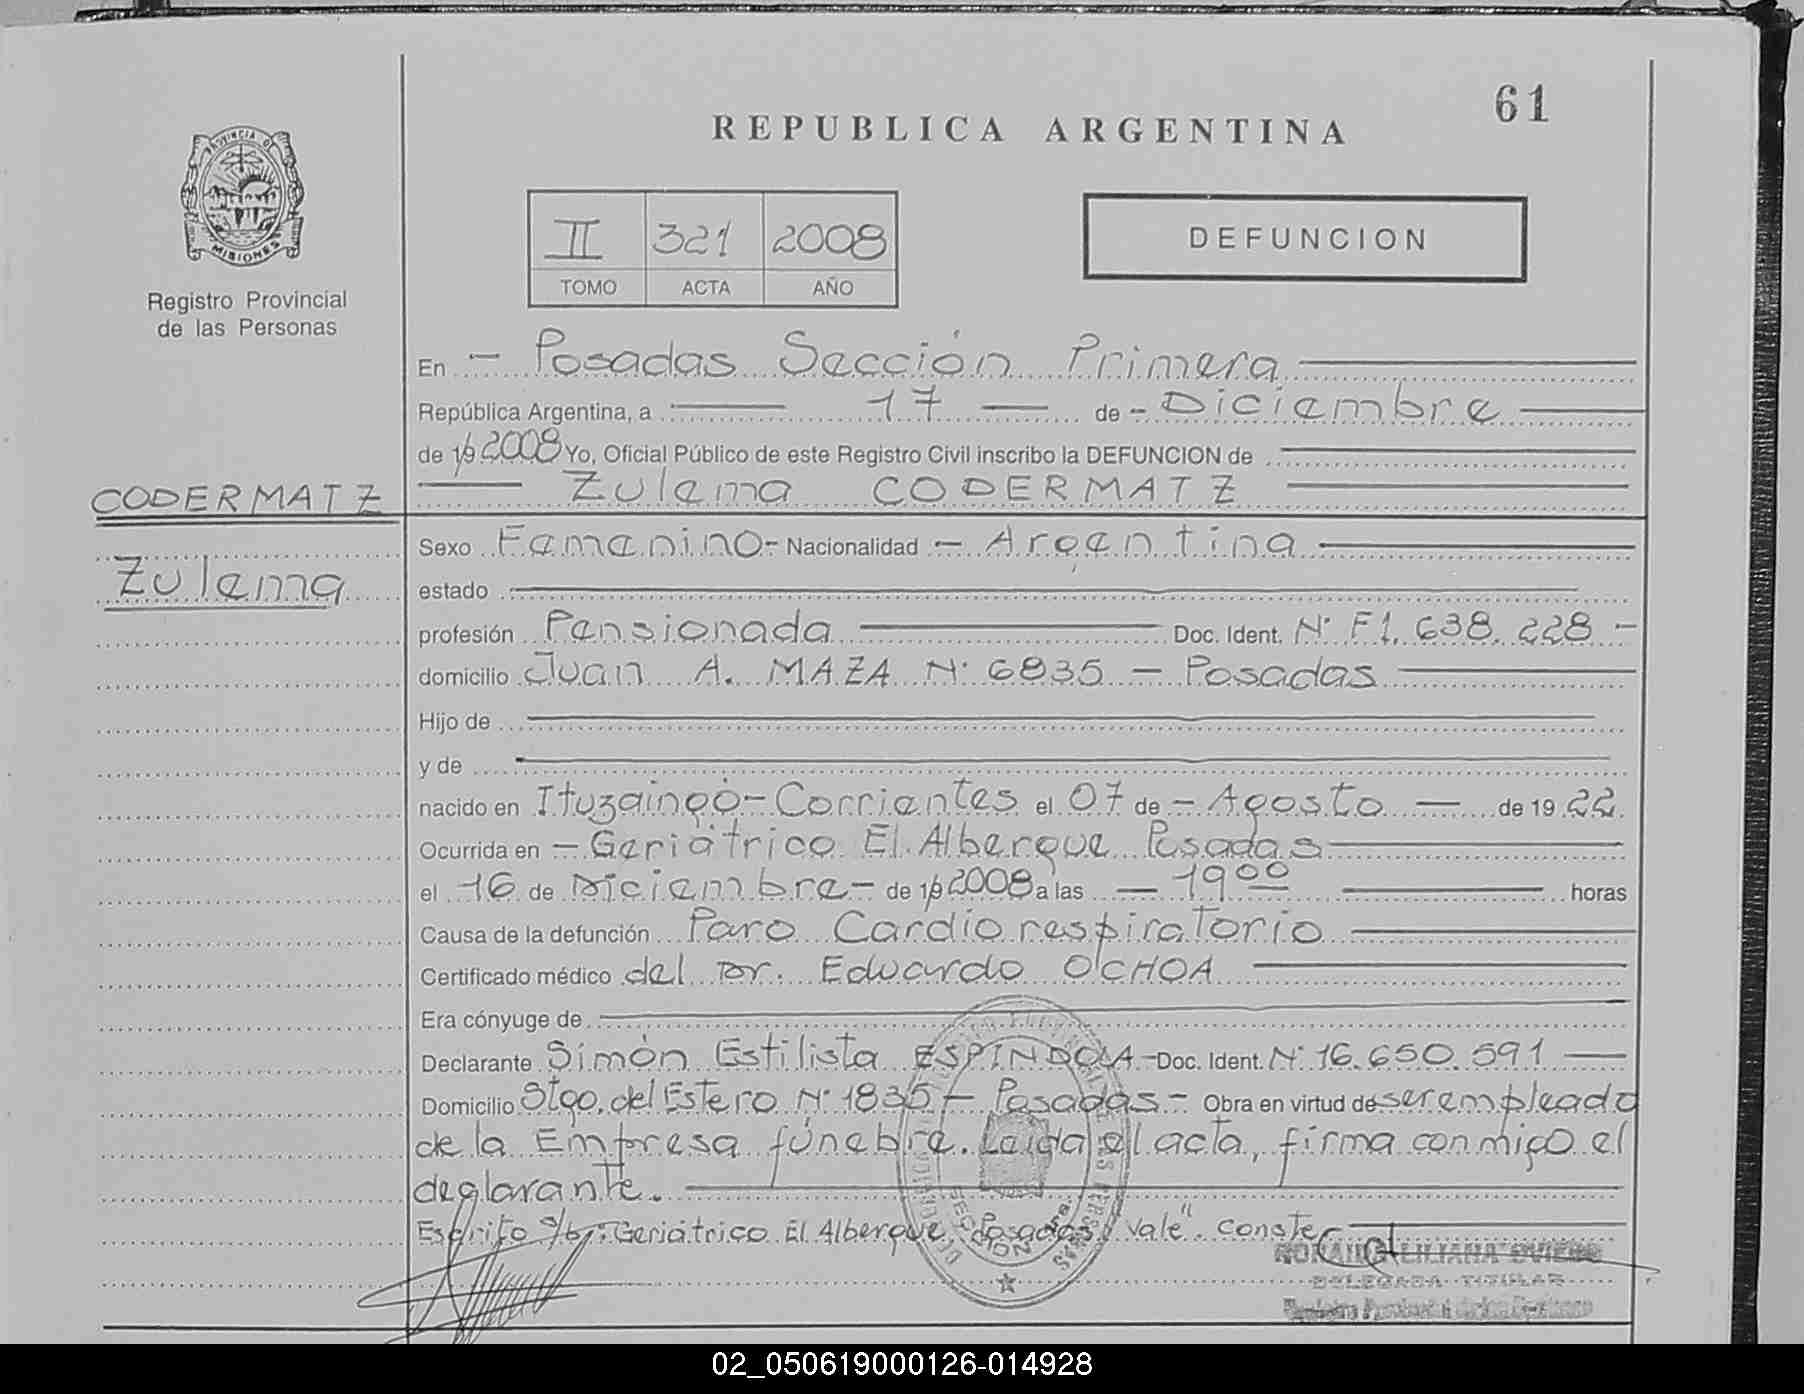 61
REPUBLICA ARGENTINA
PROVINCIA DE
MISIONES
Registro Provincial
de las Personas
II 321 2008
TOMO ACTA AÑO
DEFUNCION
En - Posadas Sección Primera
República Argentina, a 17 de - Diciembre
de 19 2008 Yo, Oficial Público de este Registro Civil inscribo la DEFUNCION de
CODERMATZ
Zulema CODERMATZ
Zulema
Sexo Femenino - Nacionalidad - Argentina
estado
profesión Pensionada Doc. Ident. Nº F1.638.228 -
domicilio Juan A. MAZA Nº 6835 - Posadas
Hijo de
y de
nacido en Ituzaingó - Corrientes el 07 de - Agosto - de 19 22
Ocurrida en - Geriátrico El Alberque Pusadas
el 16 de Diciembre - de 19 2008 a las - 19 00 horas
Causa de la defunción Paro Cardiorespiratorio
Certificado médico del Dr. Eduardo OCHOA
Era cónyuge de
Declarante Simón Estilista ESPINDOLA - Doc. Ident. Nº 16.650.591
Domicilio Stgo. del Estero Nº 1835 - Posadas - Obra en virtud de ser empleado
de la Empresa fúnebre. Leida el acta, firma conmigo el
declarante.
Escrito s/b: Geriátrico El Alberque, Posadas, Vale". Conste
SECCION 1ra.
LILIANA OVIEDO
DELEGADA TITULAR
02_050619000126-014928